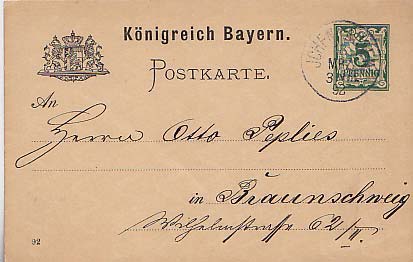 Königreich Bayern.
POSTKARTE.
5
PFENNIG
An
Herrn Otto Peplies
in Braunschweig
Wilhelmstrasse 62/II.
92